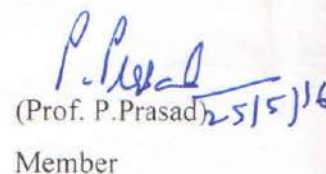 P. Prasad
(Prof. P.Prasad) 25/5/16
Member